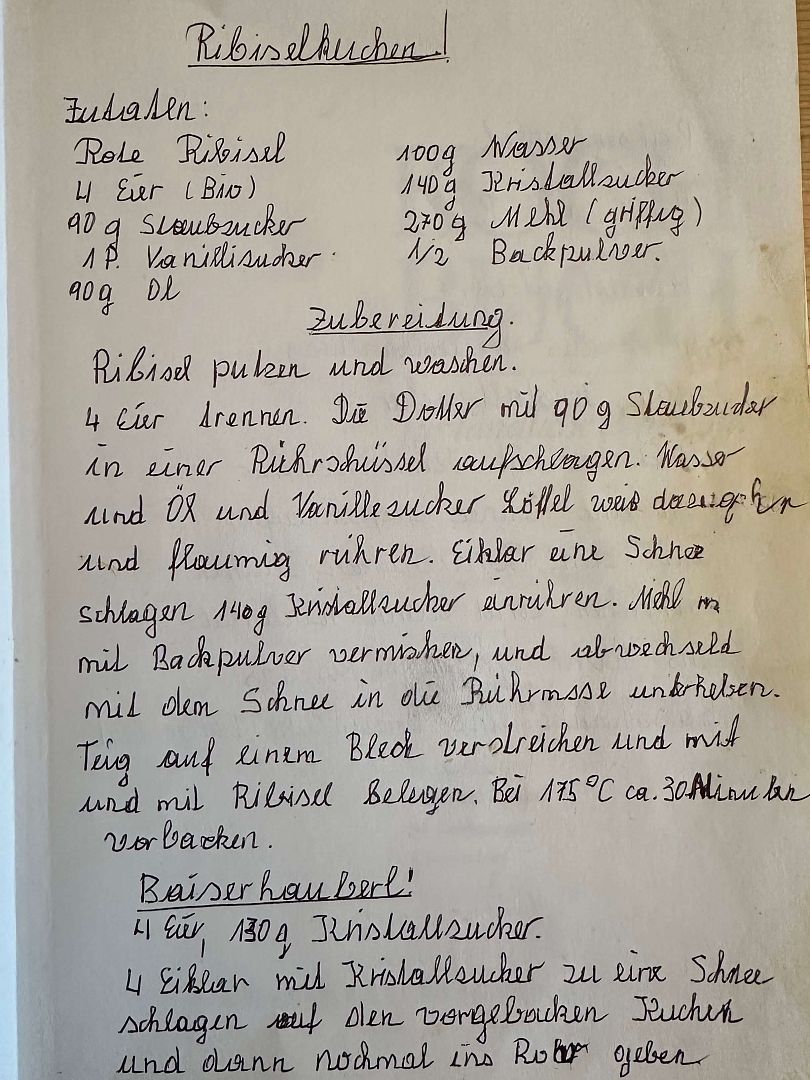 Ribiselkuchen!
Zutaten:
Rote Ribisel
4 Eier (Bio)
90 g Staubzucker
1 P. Vanillizucker
90g Öl
100g Wasser
140g Kristallzucker
270g Mehl (griffig)
1/2 Backpulver.
Zubereitung.
Ribisel putzen und waschen.
4 Eier trennen. Die Dotter mit 90 g Staubzucker
in einer Rührschüssel aufschlagen. Wasser
und Öl und Vanillezucker Löffel weis dazugeben
und flaumig rühren. Eiklar eine Schnee
schlagen 140g Kristallzucker einrühren. Mehl
mit Backpulver vermischen, und abwechseld
mit dem Schnee in die Rührmsse unterheben.
Teig auf einem Blech verstreichen und mit
und mit Ribisel Belegen. Bei 175°C ca. 30 Minuten
vorbacken.
Baiserhauberl!
4 Eier, 130g Kristallzucker.
4 Eiklar mit Kristallzucker zu eine Schnee
schlagen auf den vorgebacken Kuchen
und dann nochmal ins Rohr geben